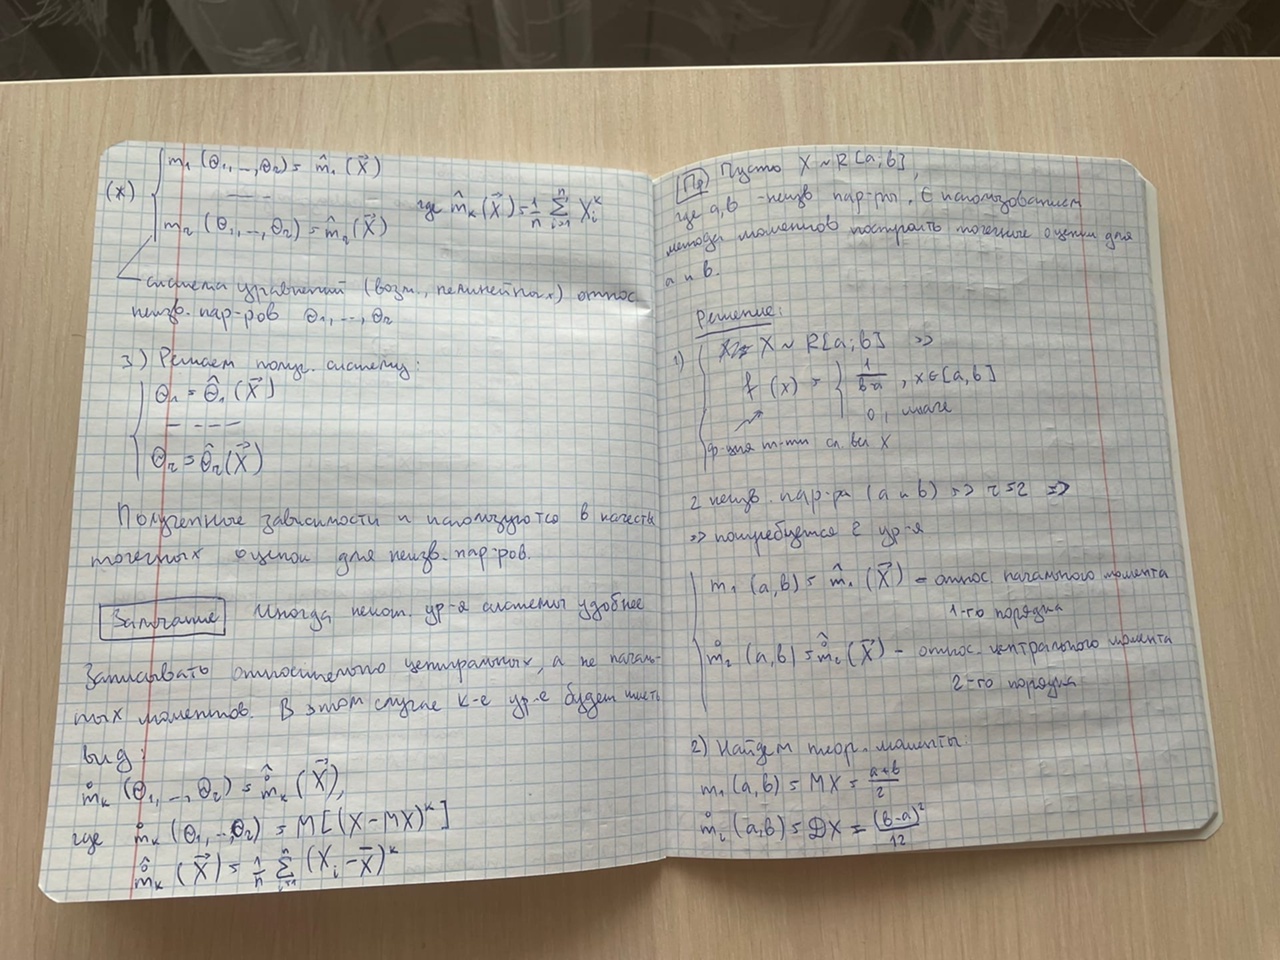 (*) { m₁ (Θ₁,...,Θ₂) = m̂₁ (X⃗)
— — —
m₂ (Θ₁,..,Θ₂) = m̂₂ (X⃗)
где m̂ₖ(X⃗) = 1/n Σᵢ₌₁ⁿ Xᵢᵏ
система уравнений (возм., нелинейных) относ
неизв. пар-ров Θ₁,...,Θ₂
3) Решаем получ. систему:
{ Θ₁ = Θ̂₁ (X⃗)
— — — —
Θ₂ = Θ̂₂ (X⃗)
Полученные зависимости и используются в качестве
точечных оценок для неизв. пар-ров.
Замечание Иногда некот. ур-я системы удобнее
записывать относительно центральных, а не началь-
ных моментов. В этом случае к-е ур-е будет иметь
вид:
m̊ₖ (Θ₁,...,Θ₂) = m̊̂ₖ (X⃗),
где m̊ₖ (Θ₁,..,Θ₂) = M[(X-MX)ᵏ]
m̊̂ₖ (X⃗) = 1/n Σᵢ₌₁ⁿ (Xᵢ - X̄)ᵏ
Пр Пусть X ~ R[a;b],
где a,b - неизв пар-ры. С использованием
метода моментов построить точечные оценки для
a и b.
Решение:
1) { X ~ R[a;b] =>
f (x) = { 1/(b-a), x∈[a,b]
0, иначе
ф-ция пл-ти сл. вел X
2 неизв. пар-ра (a и b) => r=2 =>
=> потребуется 2 ур-я
{ m₁ (a,b) = m̂₁ (X⃗) - относ. начального момента
1-го порядка
m̊₂ (a,b) = m̊̂₂ (X⃗) - относ. центрального момента
2-го порядка
2) Найдем теор. моменты:
m₁ (a,b) = MX = (a+b)/2
m̊₂ (a,b) = DX = (b-a)²/12